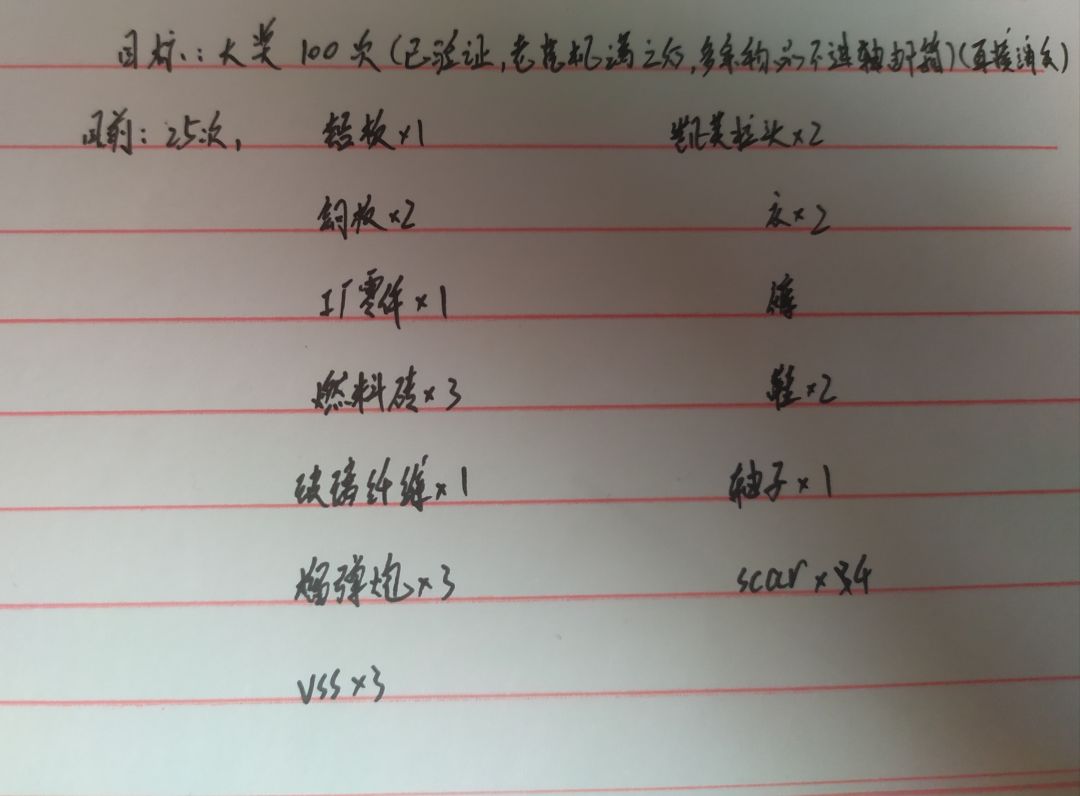 目标:大奖 100次(已验证,老虎机满之后,多余物品不进箱)(直接消失)
目前:25次, 铝板×1 凯芙拉头×2
铜板×2 衣×2
工厂零件×1 裤
燃料砖×3 鞋×2
玻璃纤维×1 轴子×1
榴弹炮×3 scar×4
vss×3